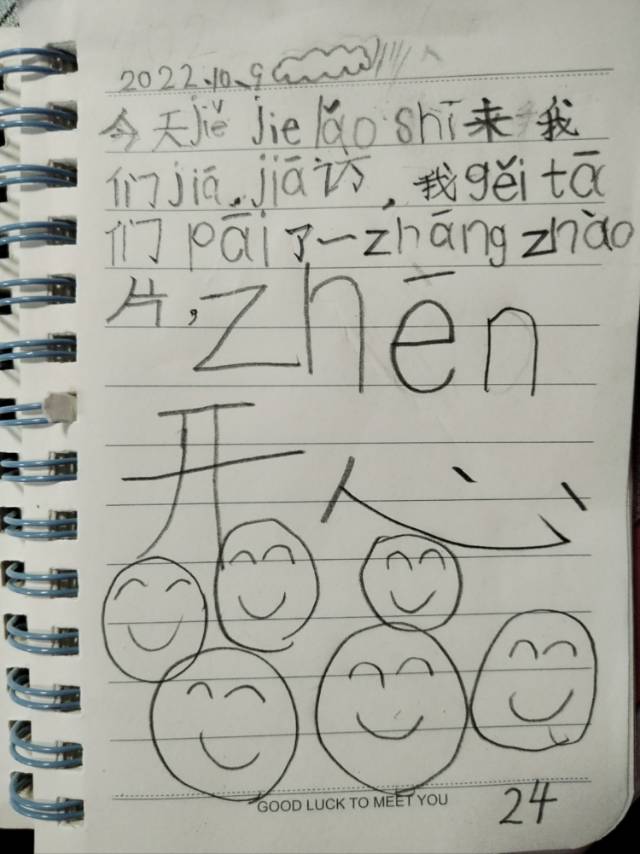 2022.10.9
今天jiě jie lǎo shī来我
们jiā,jiā访,我gěi tā
们pāi了一zhāng zhào
片,zhēn
开心
GOOD LUCK TO MEET YOU
24